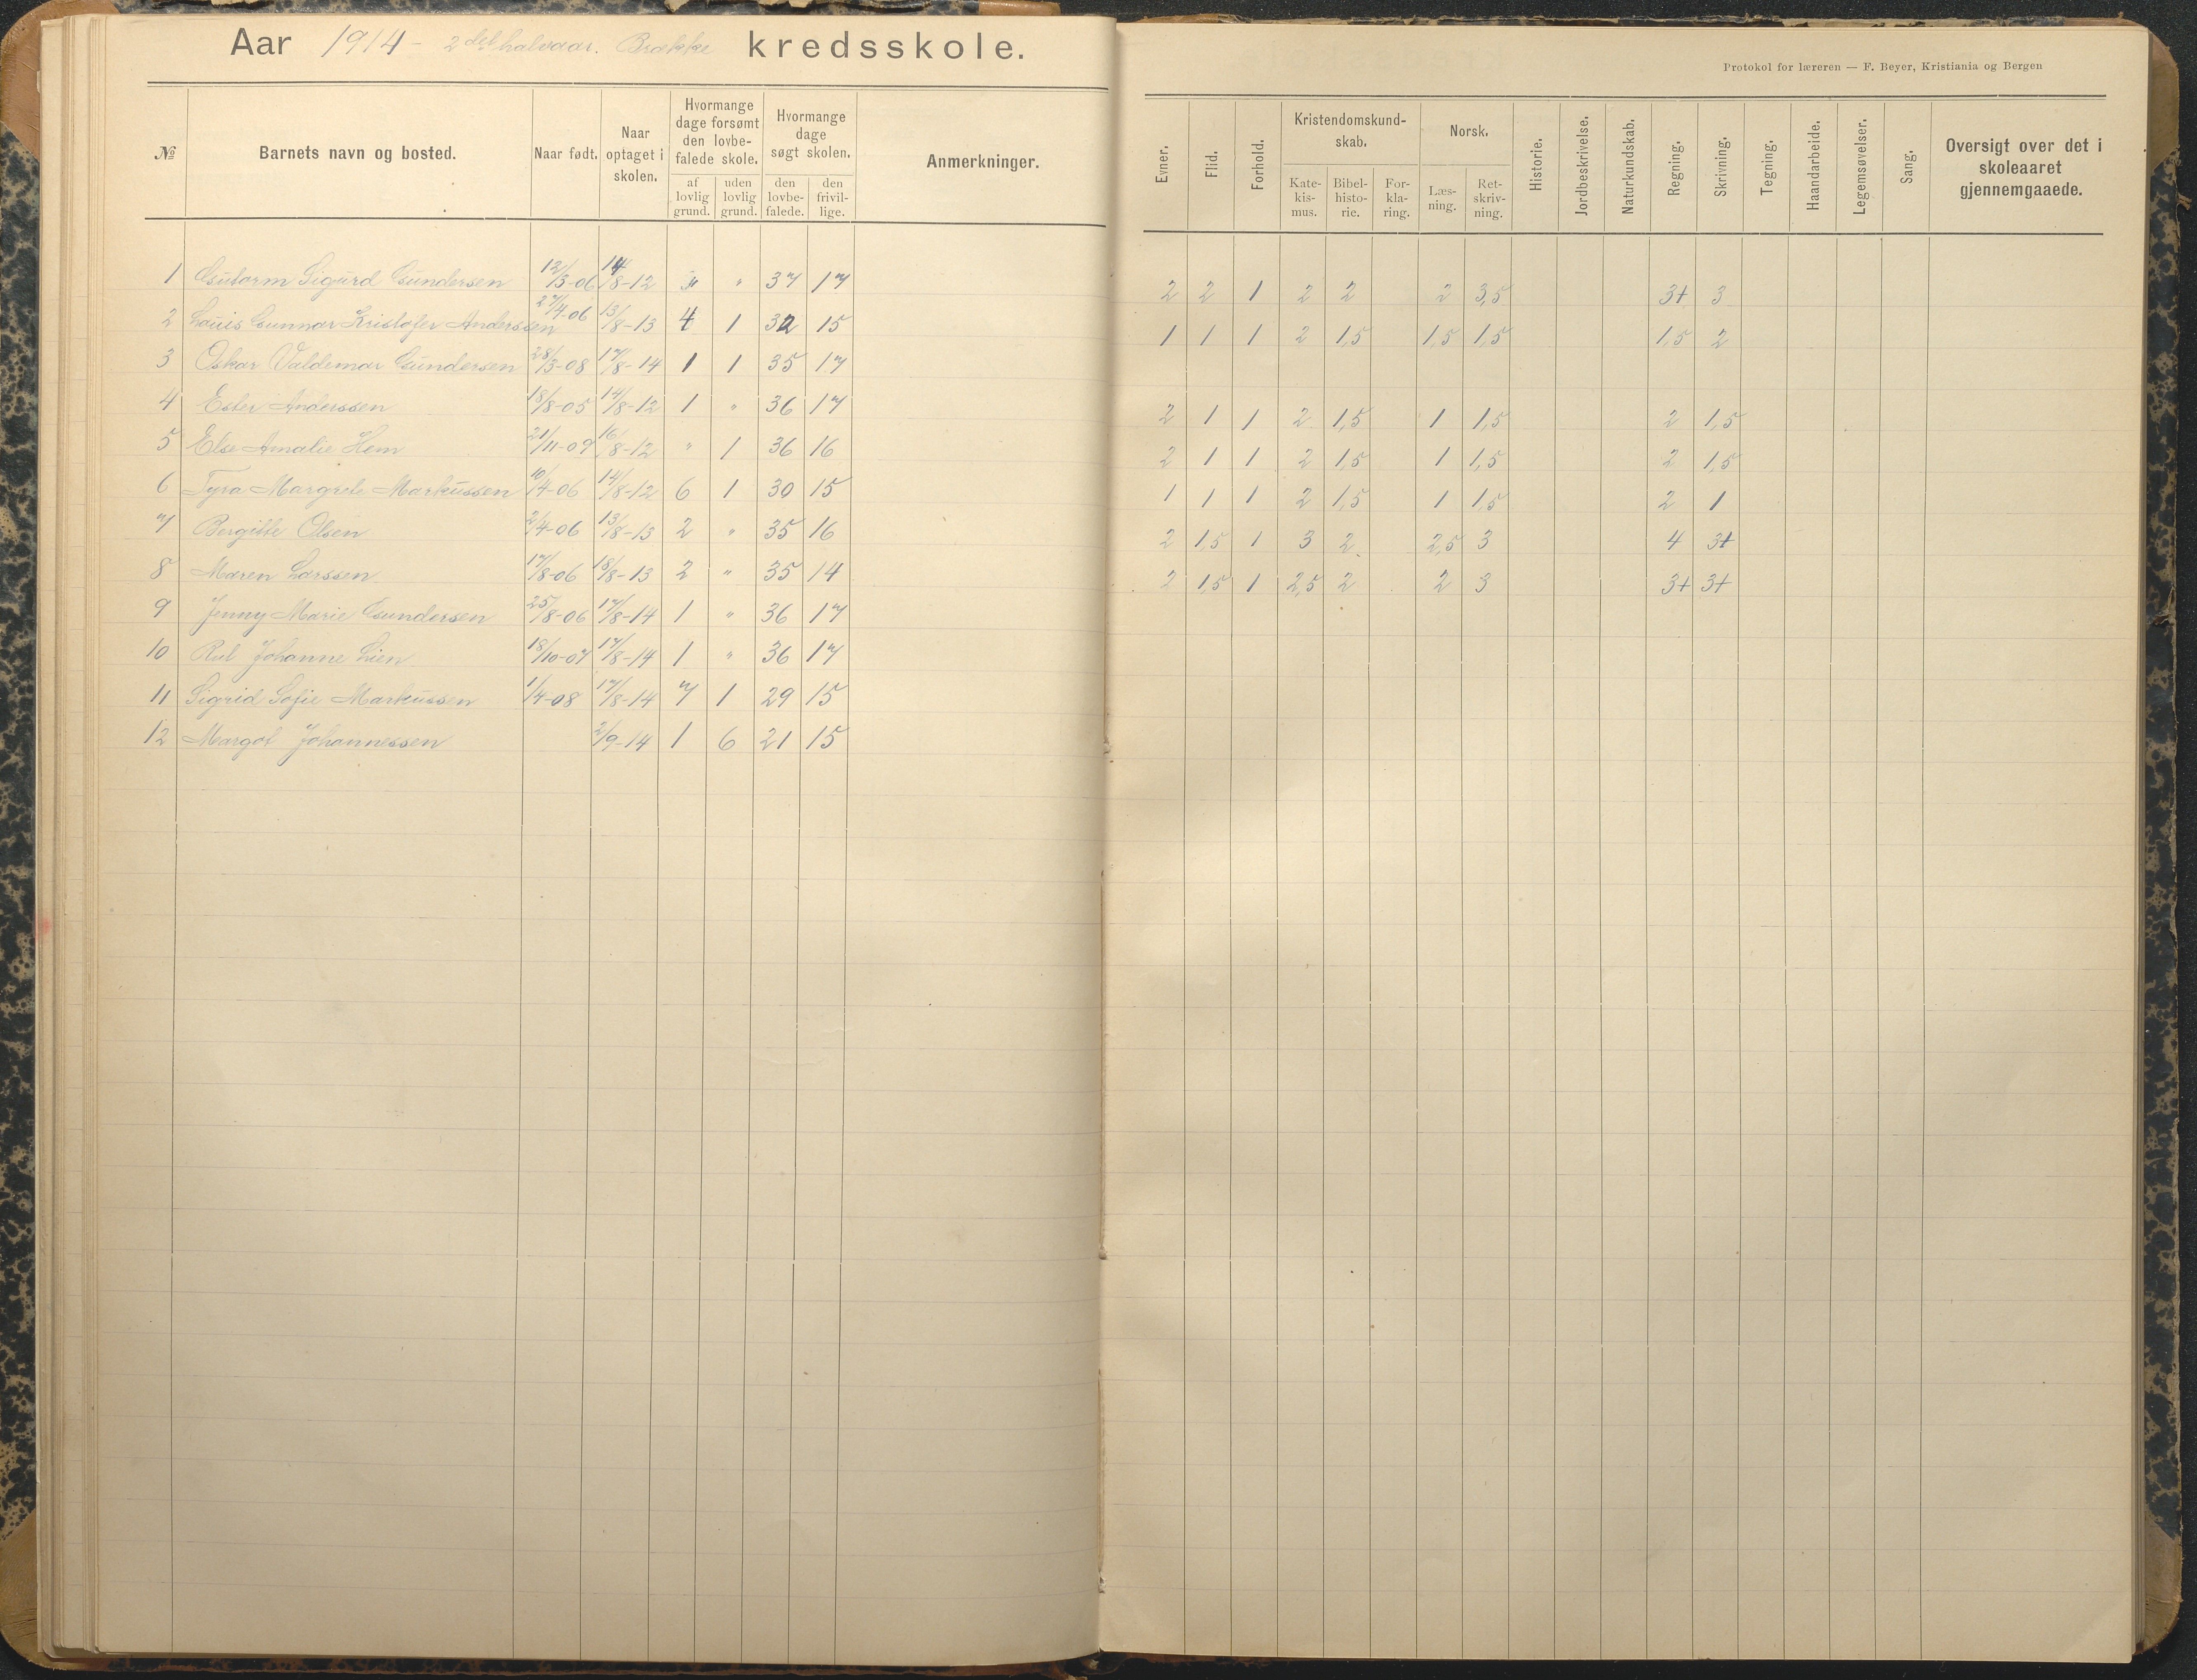 Aar 1914 - 2det halvaar. Brække kredsskole.
Protokol for læreren — F. Beyer, Kristiania og Bergen
№ Barnets navn og bosted. Naar født. Naar optaget i skolen. Hvormange dage forsømt den lovbefalede skole. af lovlig grund. uden lovlig grund. Hvormange dage søgt skolen. den lovbefalede. den frivillige. Anmerkninger.
Evner. Flid. Forhold. Kristendomskundskab. Katekismus. Bibelhistorie. Forklaring. Norsk. Læsning. Retskrivning. Historie. Jordbeskrivelse. Naturkundskab. Regning. Skrivning. Tegning. Handarbeide. Legemsøvelser. Sang. Oversigt over det i skoleaaret gjennemgaaede.
1 Gutorm Sigurd Gundersen 12/3-06 14/8-12 " 37 17 2 2 1 2 2 2 3,5 3+ 3
2 Louis Gunnar Kristofer Anderssen 27/4-06 13/8-13 4 1 32 15 1 1 1 2 1,5 1,5 1,5 1,5 2
3 Oskar Valdemar Gundersen 28/3-08 17/8-14 1 1 35 17
4 Ester Anderssen 18/8-05 14/8-12 1 " 36 17 2 1 1 2 1,5 1 1,5 2 1,5
5 Else Amalie Hem 21/11-09 16/8-12 " 1 36 16 2 1 1 2 1,5 1 1,5 2 1,5
6 Tyra Margrete Markussen 10/4-06 14/8-12 6 1 30 15 1 1 1 2 1,5 1 1,5 2 1
7 Bergitte Olsen 2/4-06 13/8-13 2 " 35 16 2 1,5 1 3 2 2,5 3 4 3+
8 Maren Larssen 17/8-06 18/8-13 2 " 35 14 2 1,5 1 2,5 2 2 3 3+ 3+
9 Jenny Marie Gundersen 25/8-06 17/8-14 1 " 36 17
10 Rut Johanne Lien 18/10-07 17/8-14 1 " 36 17
11 Sigrid Sofie Markussen 1/4-08 17/8-14 7 1 29 15
12 Margot Johannessen 2/9-14 1 6 21 15